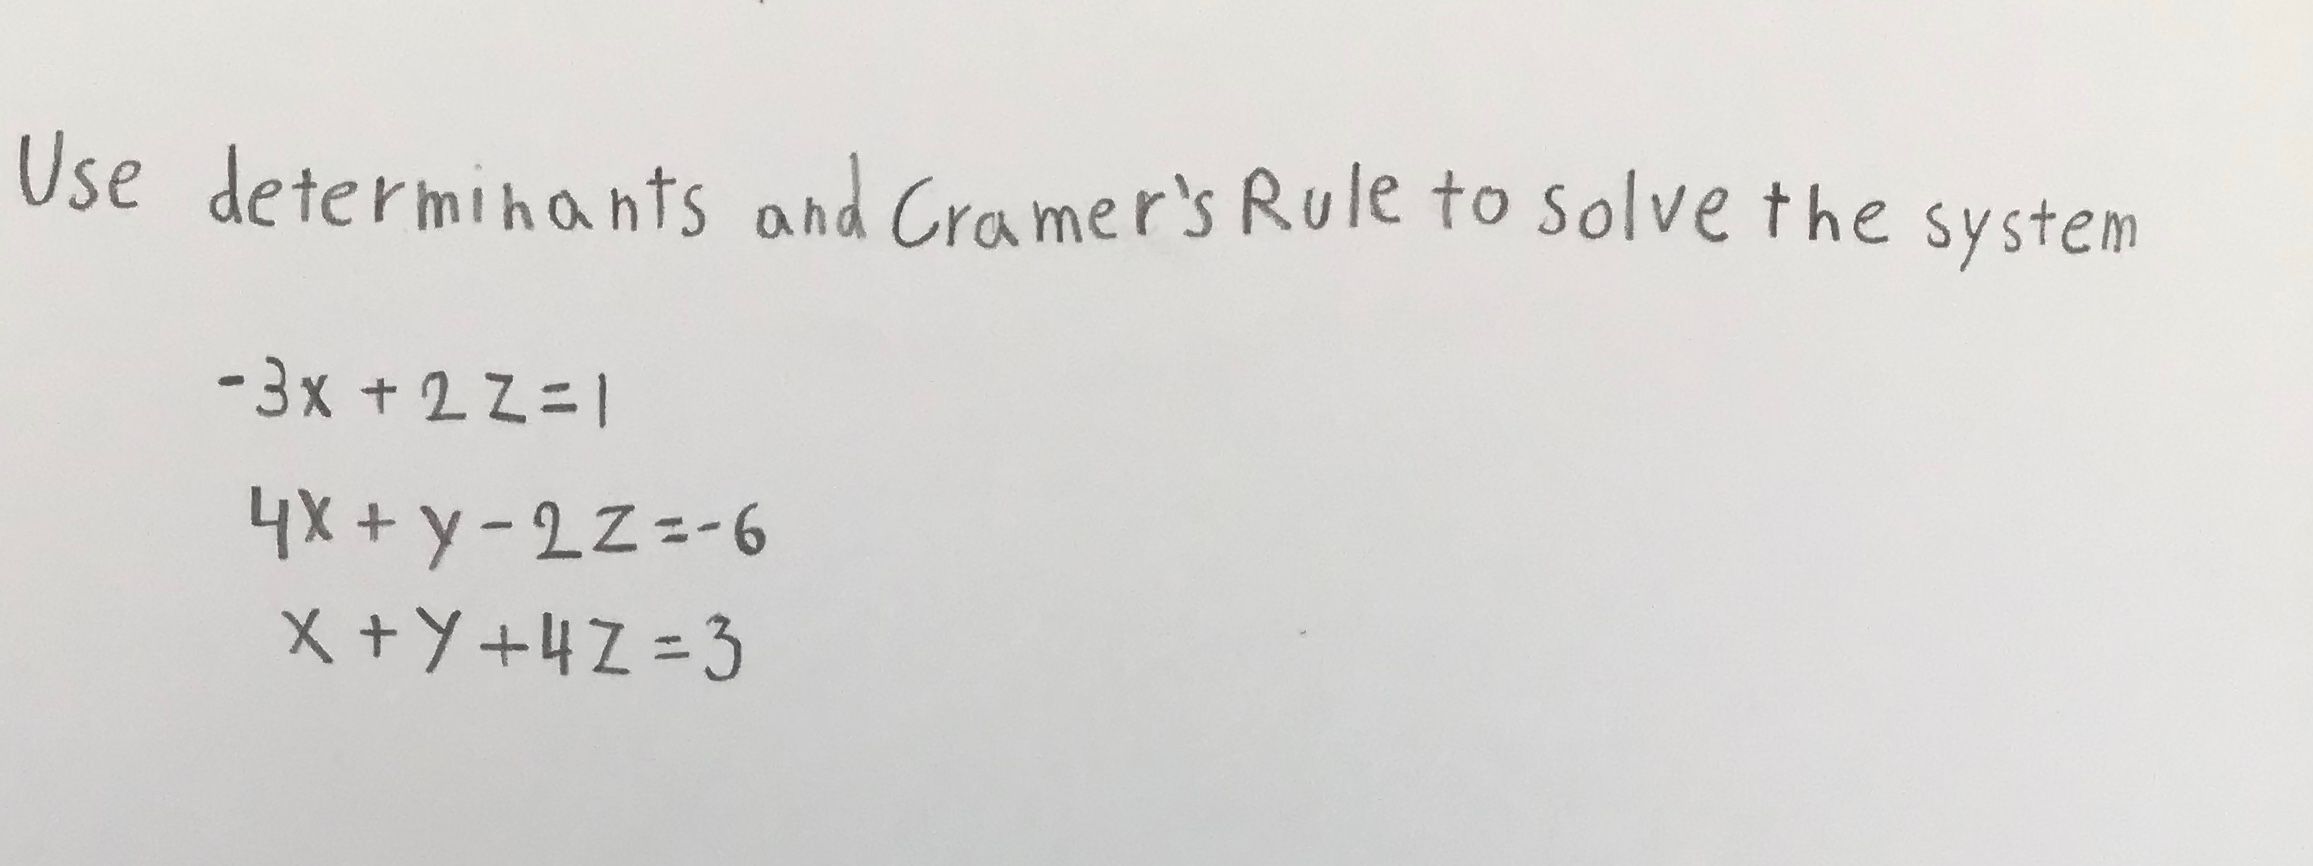 Use determinants and Cramer's Rule to solve the system
-3x + 2z = 1
4x + y - 2z = -6
x + y + 4z = 3